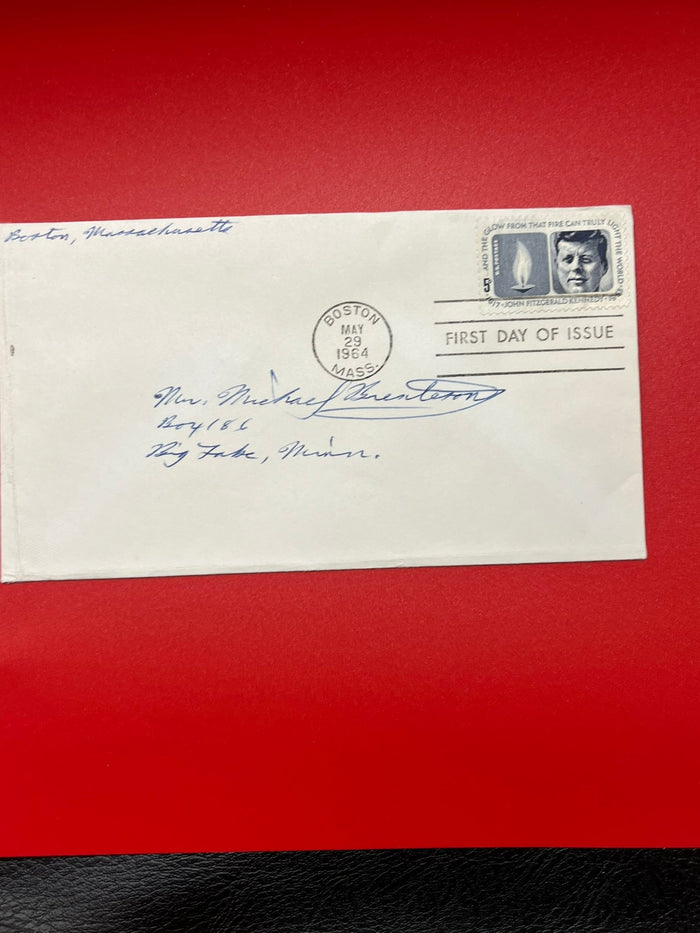 Boston, Massachusetts
AND THE GLOW FROM THAT FIRE CAN TRULY LIGHT THE WORLD
U.S. POSTAGE
5
JOHN FITZGERALD KENNEDY
BOSTON
MAY
29
1964
MASS.
FIRST DAY OF ISSUE
Mr. Michael
Box 186
Big Lake, Minn.